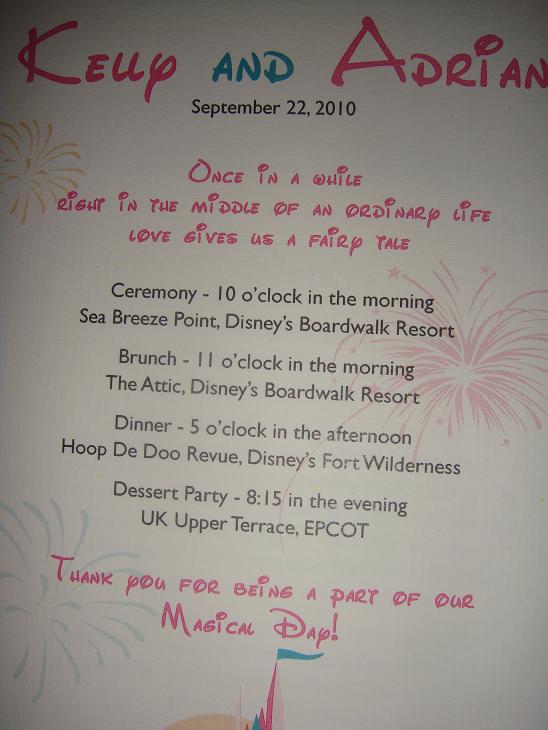 Kelly and Adrian
September 22, 2010
Once in a while
right in the middle of an ordinary life
love gives us a fairy tale
Ceremony - 10 o'clock in the morning
Sea Breeze Point, Disney's Boardwalk Resort
Brunch - 11 o'clock in the morning
The Attic, Disney's Boardwalk Resort
Dinner - 5 o'clock in the afternoon
Hoop De Doo Revue, Disney's Fort Wilderness
Dessert Party - 8:15 in the evening
UK Upper Terrace, EPCOT
Thank you for being a part of our
Magical Day!